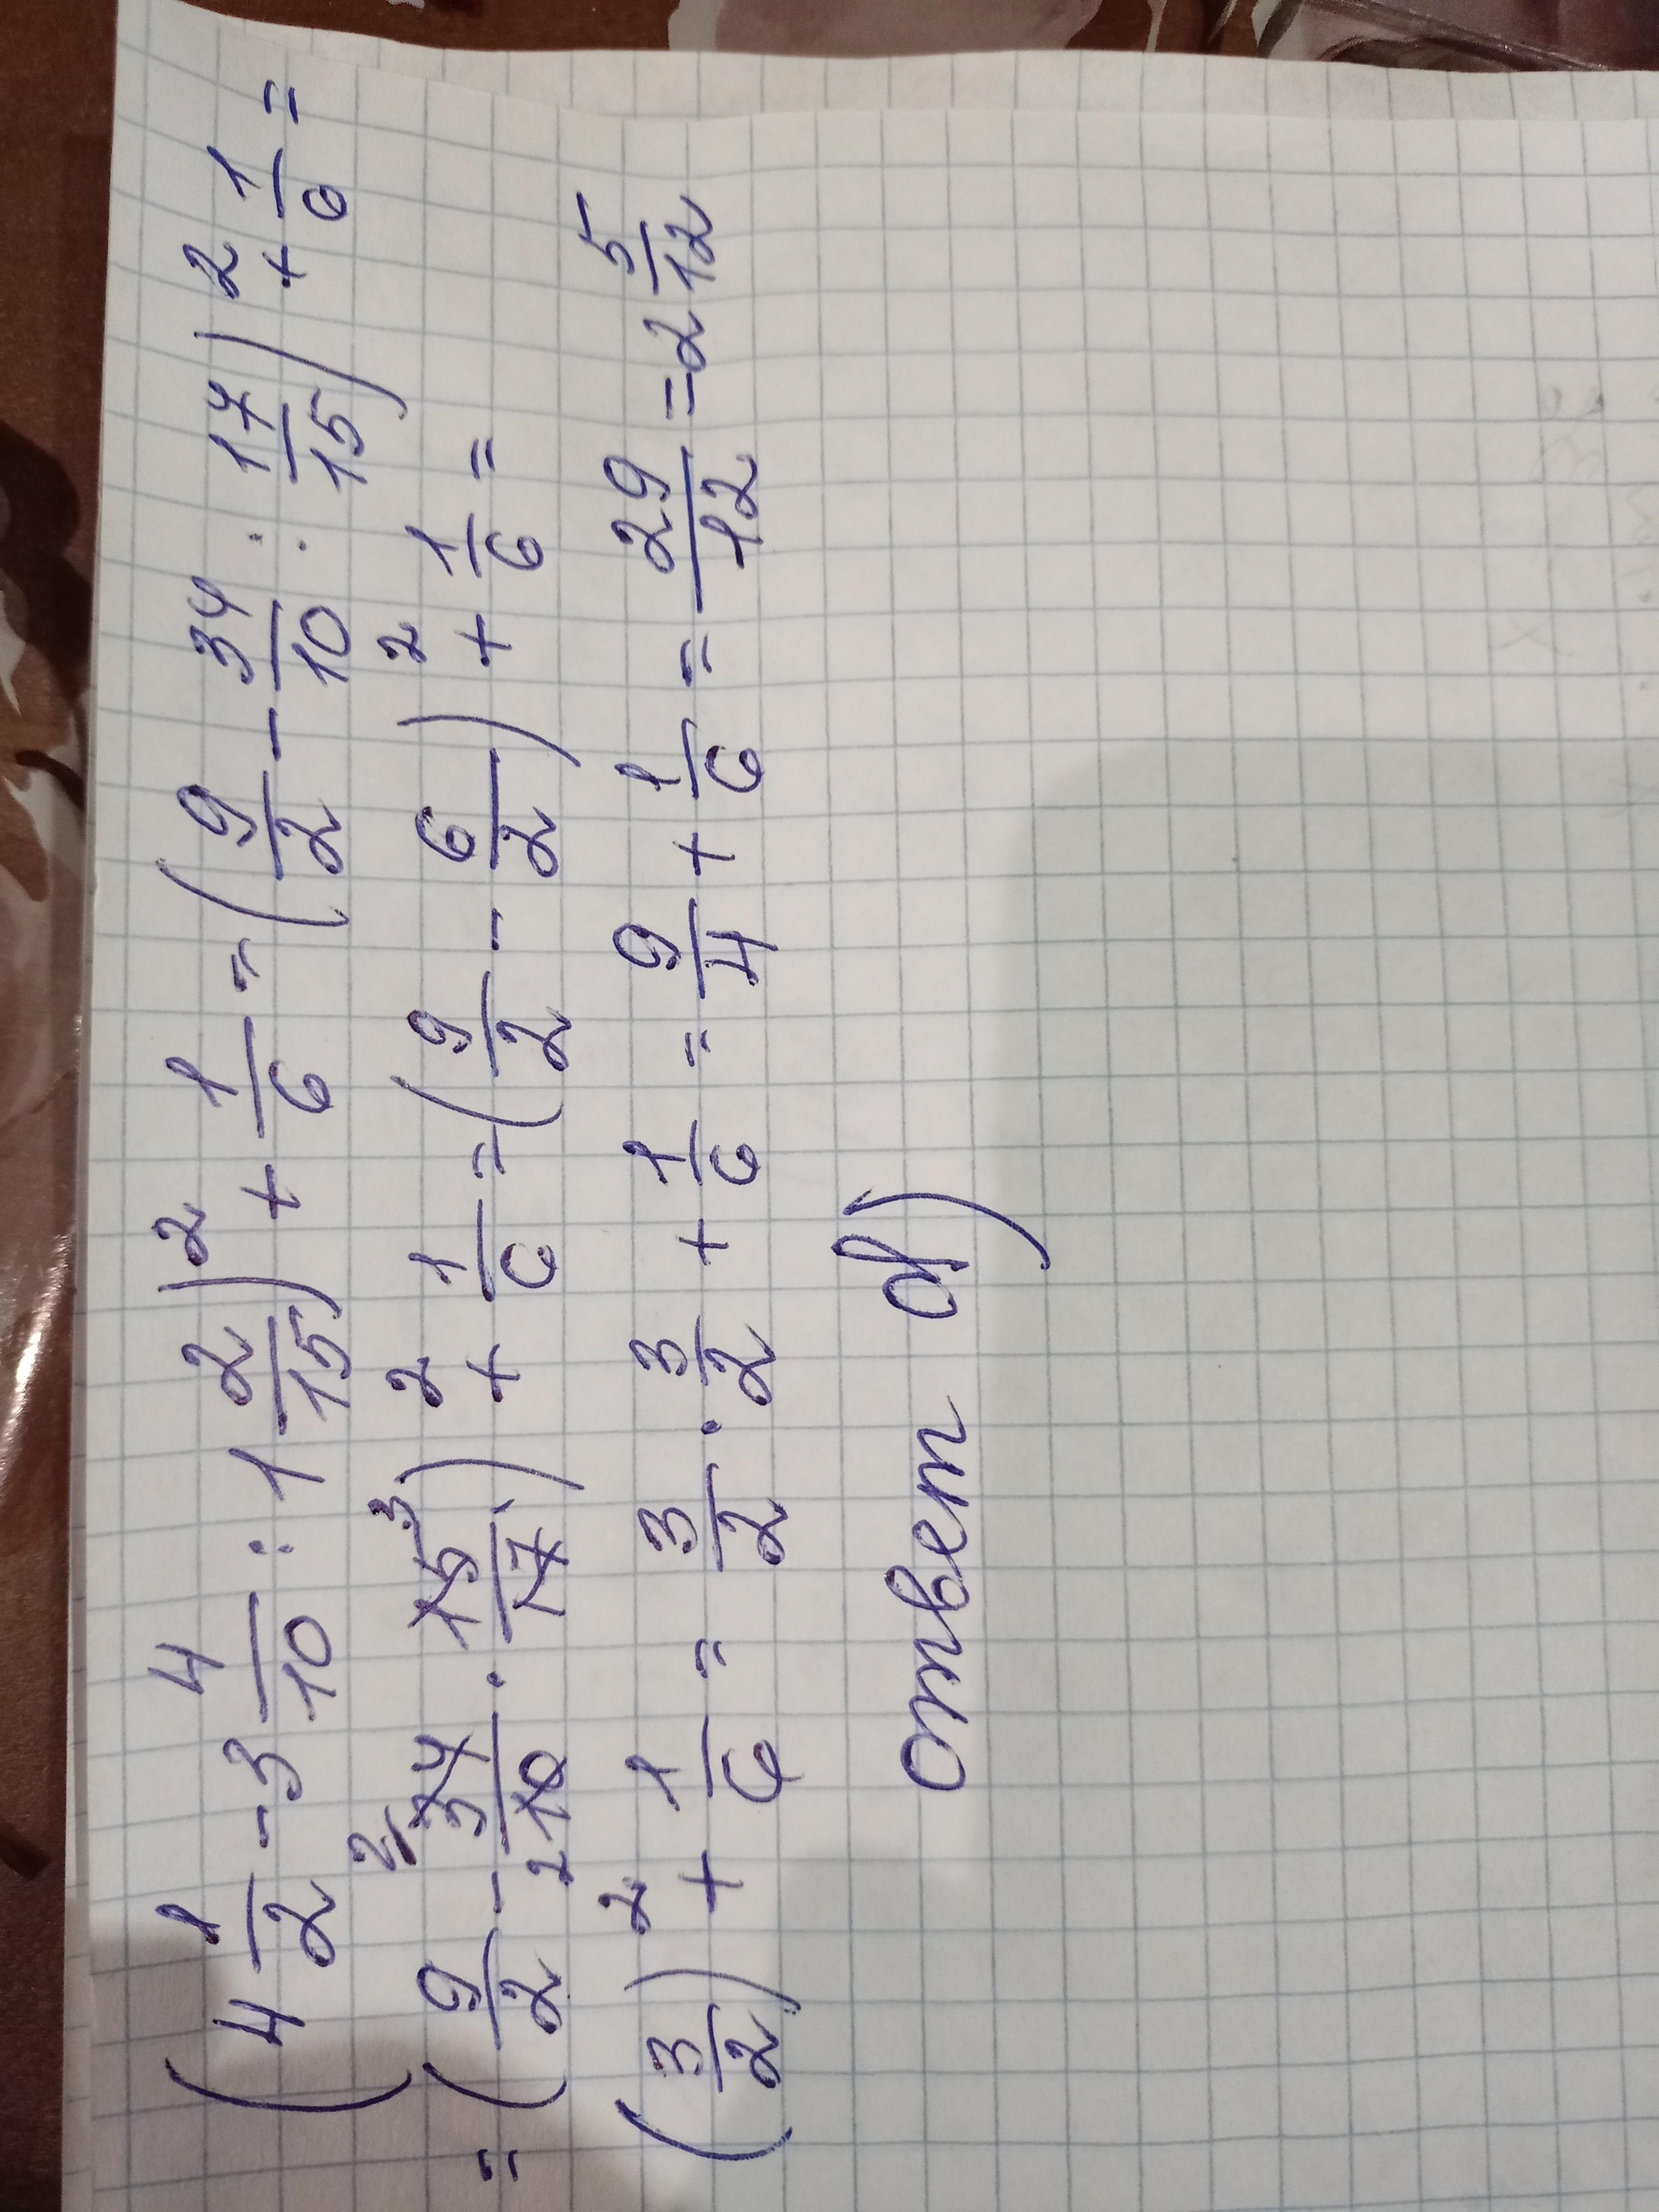 (4 1/2 - 3 4/10 : 1 2/15)² + 1/6 = (9/2 - 34/10 : 17/15)² + 1/6 =
= (9/2 - 34/10 · 15/17)² + 1/6 = (9/2 - 6/2)² + 1/6 =
(3/2)² + 1/6 = 3/2 · 3/2 + 1/6 = 9/4 + 1/6 = 29/12 = 2 5/12
Ответ а)